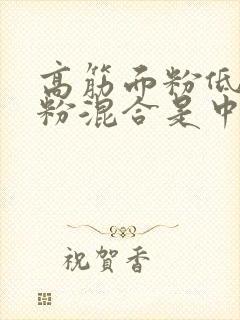 高筋面粉低
粉混合是中
祝賀香